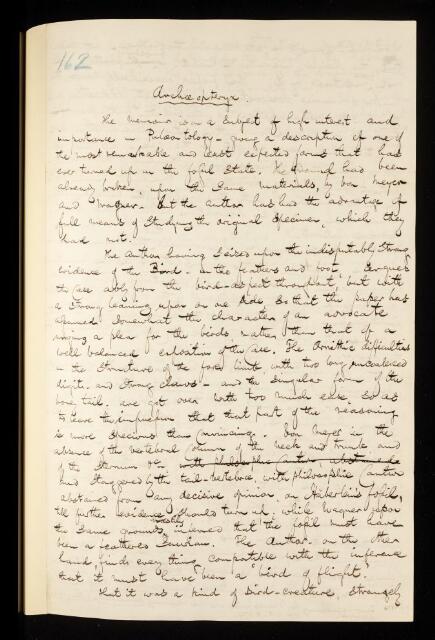 162
Archæopteryx.
The memoir is on a subject of high interest and
importance in Palæontology - giving a description of one of
the most remarkable and least expected forms that has
ever turned up in the fossil state. The ground has been
already broken, upon the same materials, by von Meyer
and Wagner - but the author has had the advantage of
full means of studying the original specimen, which they
had not.
The Author having seized upon the indisputably strong
evidence of the Bird - in the feathers and foot, argues
the case ably from the bird-aspect throughout, but with
a strong leaning upon one side. So that the paper has
assumed somewhat the character of an advocate
making a plea for the birds rather than that of a
well balanced exposition of the case. The Ornithic difficulties
in the structure of the fore limb with two long unconnected
digits and strong claws - and the singular form of the
bone tail are got over with too much ease so as
to leave the impression that that part of the reasoning
is more specious than convincing. Von Meyer in the
absence of the vertebral column of the neck and trunk and
of the Sternum &c.
and staggered by the tail-vertebræ, with philosophic caution
abstained from any decisive opinion, on Häberlein's fossil,
till further evidence should turn up; while Wagner upon
the same grounds mainly, inferred that the fossil must have
been a feathered Saurian. The Author - on the other
hand, finds every thing compatible with the inference
that it must have been a 'bird of flight'.
That it was a kind of bird-creature, strangely